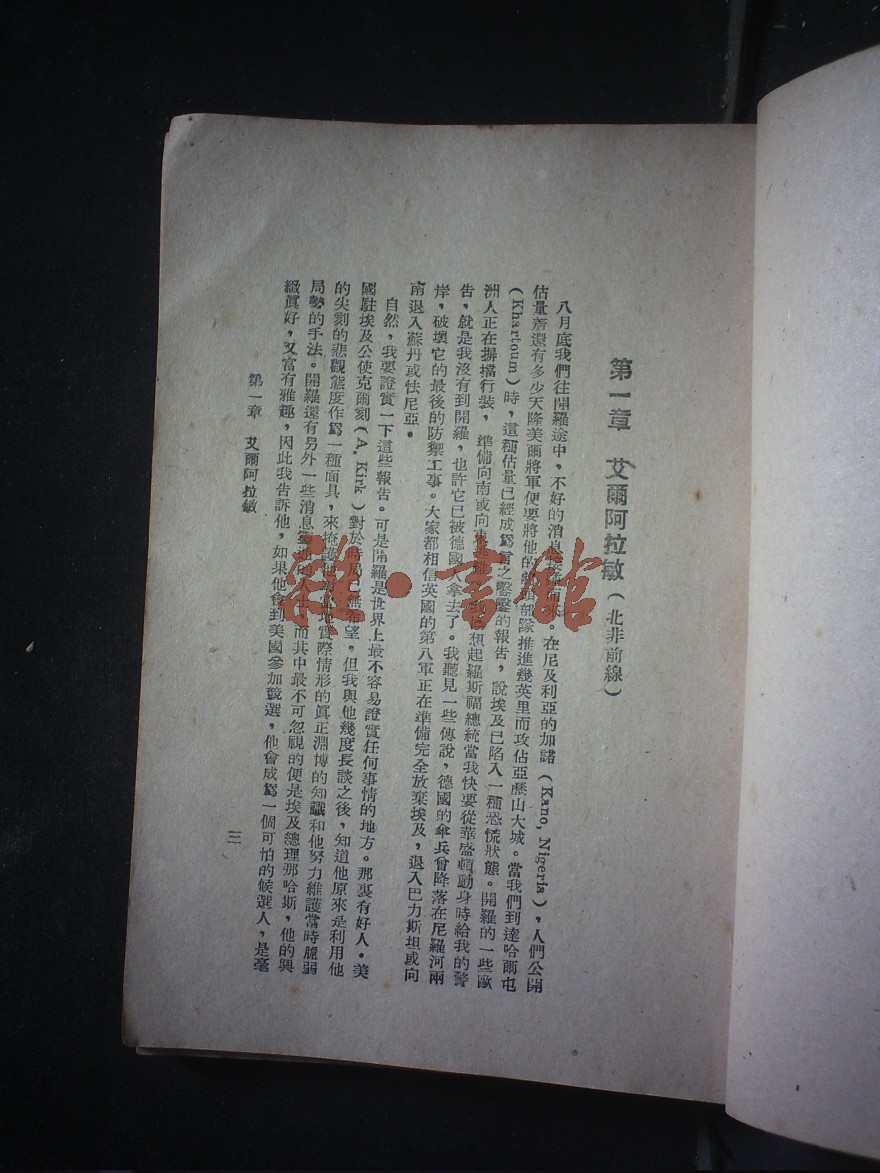 第一章 艾爾阿拉敏（北非前線）
八月底我們往開羅途中，不好的消息。在尼及利亞的加諾（Kano, Nigeria），人們公開
估量着還有多少天隆美爾將軍便要將他的部隊推進幾英里而攻佔亞歷山大城。當我們到達哈爾屯
（Khartoum）時，這種估量已經成爲言之鑿鑿的報告，說埃及已陷入一種恐慌狀態。開羅的一些歐
洲人正在摒擋行裝，準備向南或向東想起羅斯福總統當我快要從華盛頓動身時給我的警
告，就是我沒有到開羅，也許它已被德國人拿去了。我聽見一些傳說，德國的傘兵曾降落在尼羅河兩
岸，破壞它的最後的防禦工事。大家都相信英國的第八軍正在準備完全放棄埃及，退入巴力斯坦或向
南退入蘇丹或怯尼亞。
自然，我要證實一下這些報告。可是開羅是世界上最不容易證實任何事情的地方。那裏有好人。美
國駐埃及公使克爾刻（A. Kirk）對於時局已無希望，但我與他幾度長談之後，知道他原來是利用他
的尖刻的悲觀態度作爲一種面具，來掩護他對此地實際情形的眞正淵博的知識和他努力維護當時脆弱
局勢的手法。開羅還有另外一些消息靈通的人士，而其中最不可忽視的便是埃及總理那哈斯，他的興
緻眞好，又富有雅趣，因此我告訴他，如果他會到美國參加競選，他會成爲一個可怕的候選人，是毫
第一章 艾爾阿拉敏
三
雜·書館